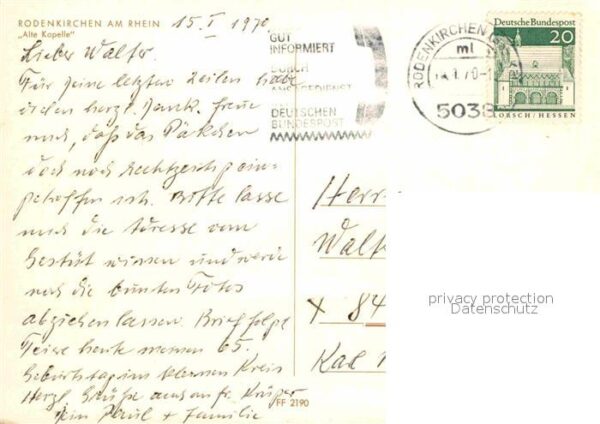 RODENKIRCHEN AM RHEIN
„Alte Kapelle"
15. I 1970
Lieber Walter.
Für Deine letzten Zeilen habe
vielen herzl. Dank. Freue
mich, daß das Päckchen
doch noch rechtzeitig ein-
getroffen ist. Bitte lasse
mich die Adresse vom
Gestüt wissen und werde
noch die bunten Fotos
abziehen lassen. Brief folgt
Feiere heute meinen 65.
Geburtstag im kleinen Kreis
Herzl. Grüße auch an fr. Krüger
Dein Paul + Familie
FF 2190
GUT
INFORMIERT
DURCH
DEUTSCHEN
BUNDESPOST
RODENKIRCHEN
ml
5038
Deutsche Bundespost
20
LORSCH/HESSEN
Herr
Walt
x 84
Karl
privacy protection
Datenschutz